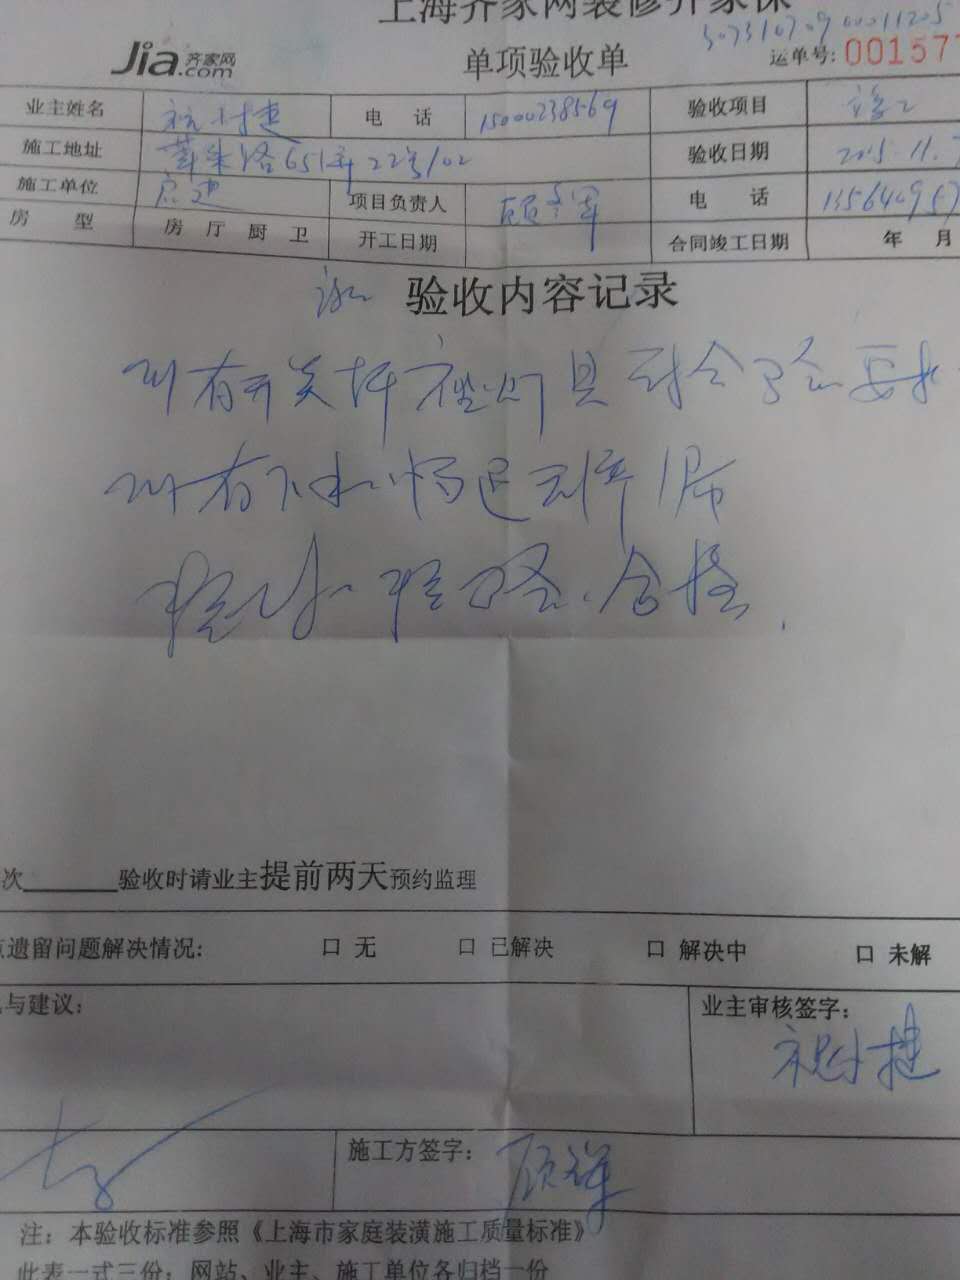 上海齐家网装修齐家保
50731070900011205
Jia.com 齐家网 单项验收单 运单号: 001577
业主姓名 祝时捷 电 话 15000238569 验收项目 竣工
施工地址 651弄22号102 验收日期 2015.11.7
施工单位 项目负责人 电 话 135640957
房 型 房 厅 厨 卫 开工日期 合同竣工日期 年 月
验收内容记录
所有开关插座灯具 符合 要求
所有下水畅通无滞漏
竣工验 合格.
次 验收时请业主提前两天预约监理
遗留问题解决情况: □ 无 □ 已解决 □ 解决中 □ 未解
与建议:
业主审核签字:
祝时捷
施工方签字:
注: 本验收标准参照《上海市家庭装潢施工质量标准》
此表一式三份: 网站、业主、施工单位各归档一份